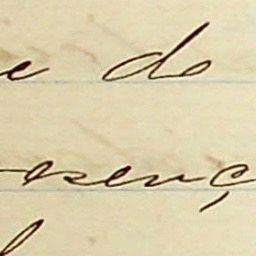 e do
esenç